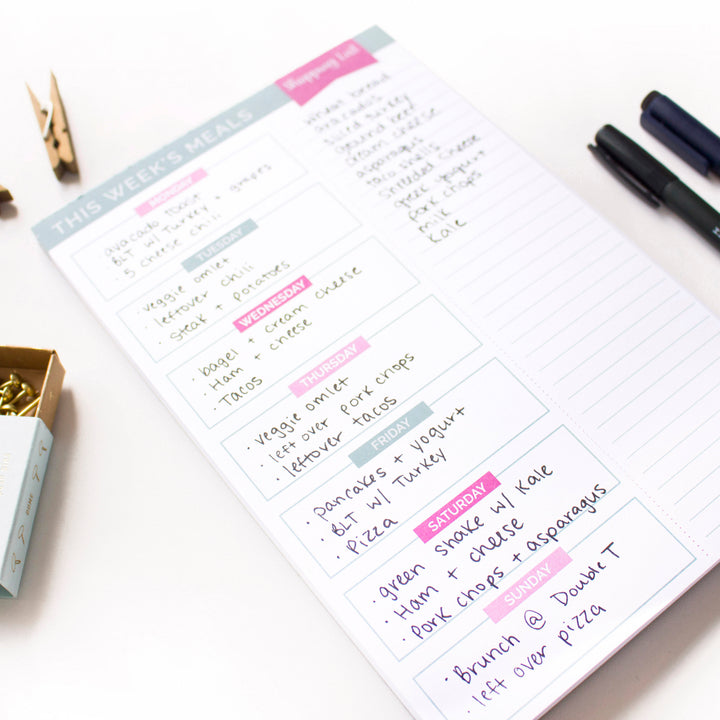 THIS WEEK'S MEALS
MONDAY
· avacado toast
· BLT w/ Turkey + grapes
· 5 cheese chili
TUESDAY
· veggie omlet
· leftover chili
· steak + potatoes
WEDNESDAY
· bagel + cream cheese
· Ham + cheese
· Tacos
THURSDAY
· veggie omlet
· left over pork chops
· leftover tacos
FRIDAY
· pancakes + yogurt
· BLT w/ Turkey
· Pizza
SATURDAY
· green shake w/ Kale
· Ham + cheese
· Pork chops + asparagus
SUNDAY
· Brunch @ Double T
· left over pizza
Shopping List
wheat bread
avacados
sliced turkey
ground beef
cream cheese
asparagus
taco shells
Shredded cheese
greek yogurt
pork chops
milk
Kale